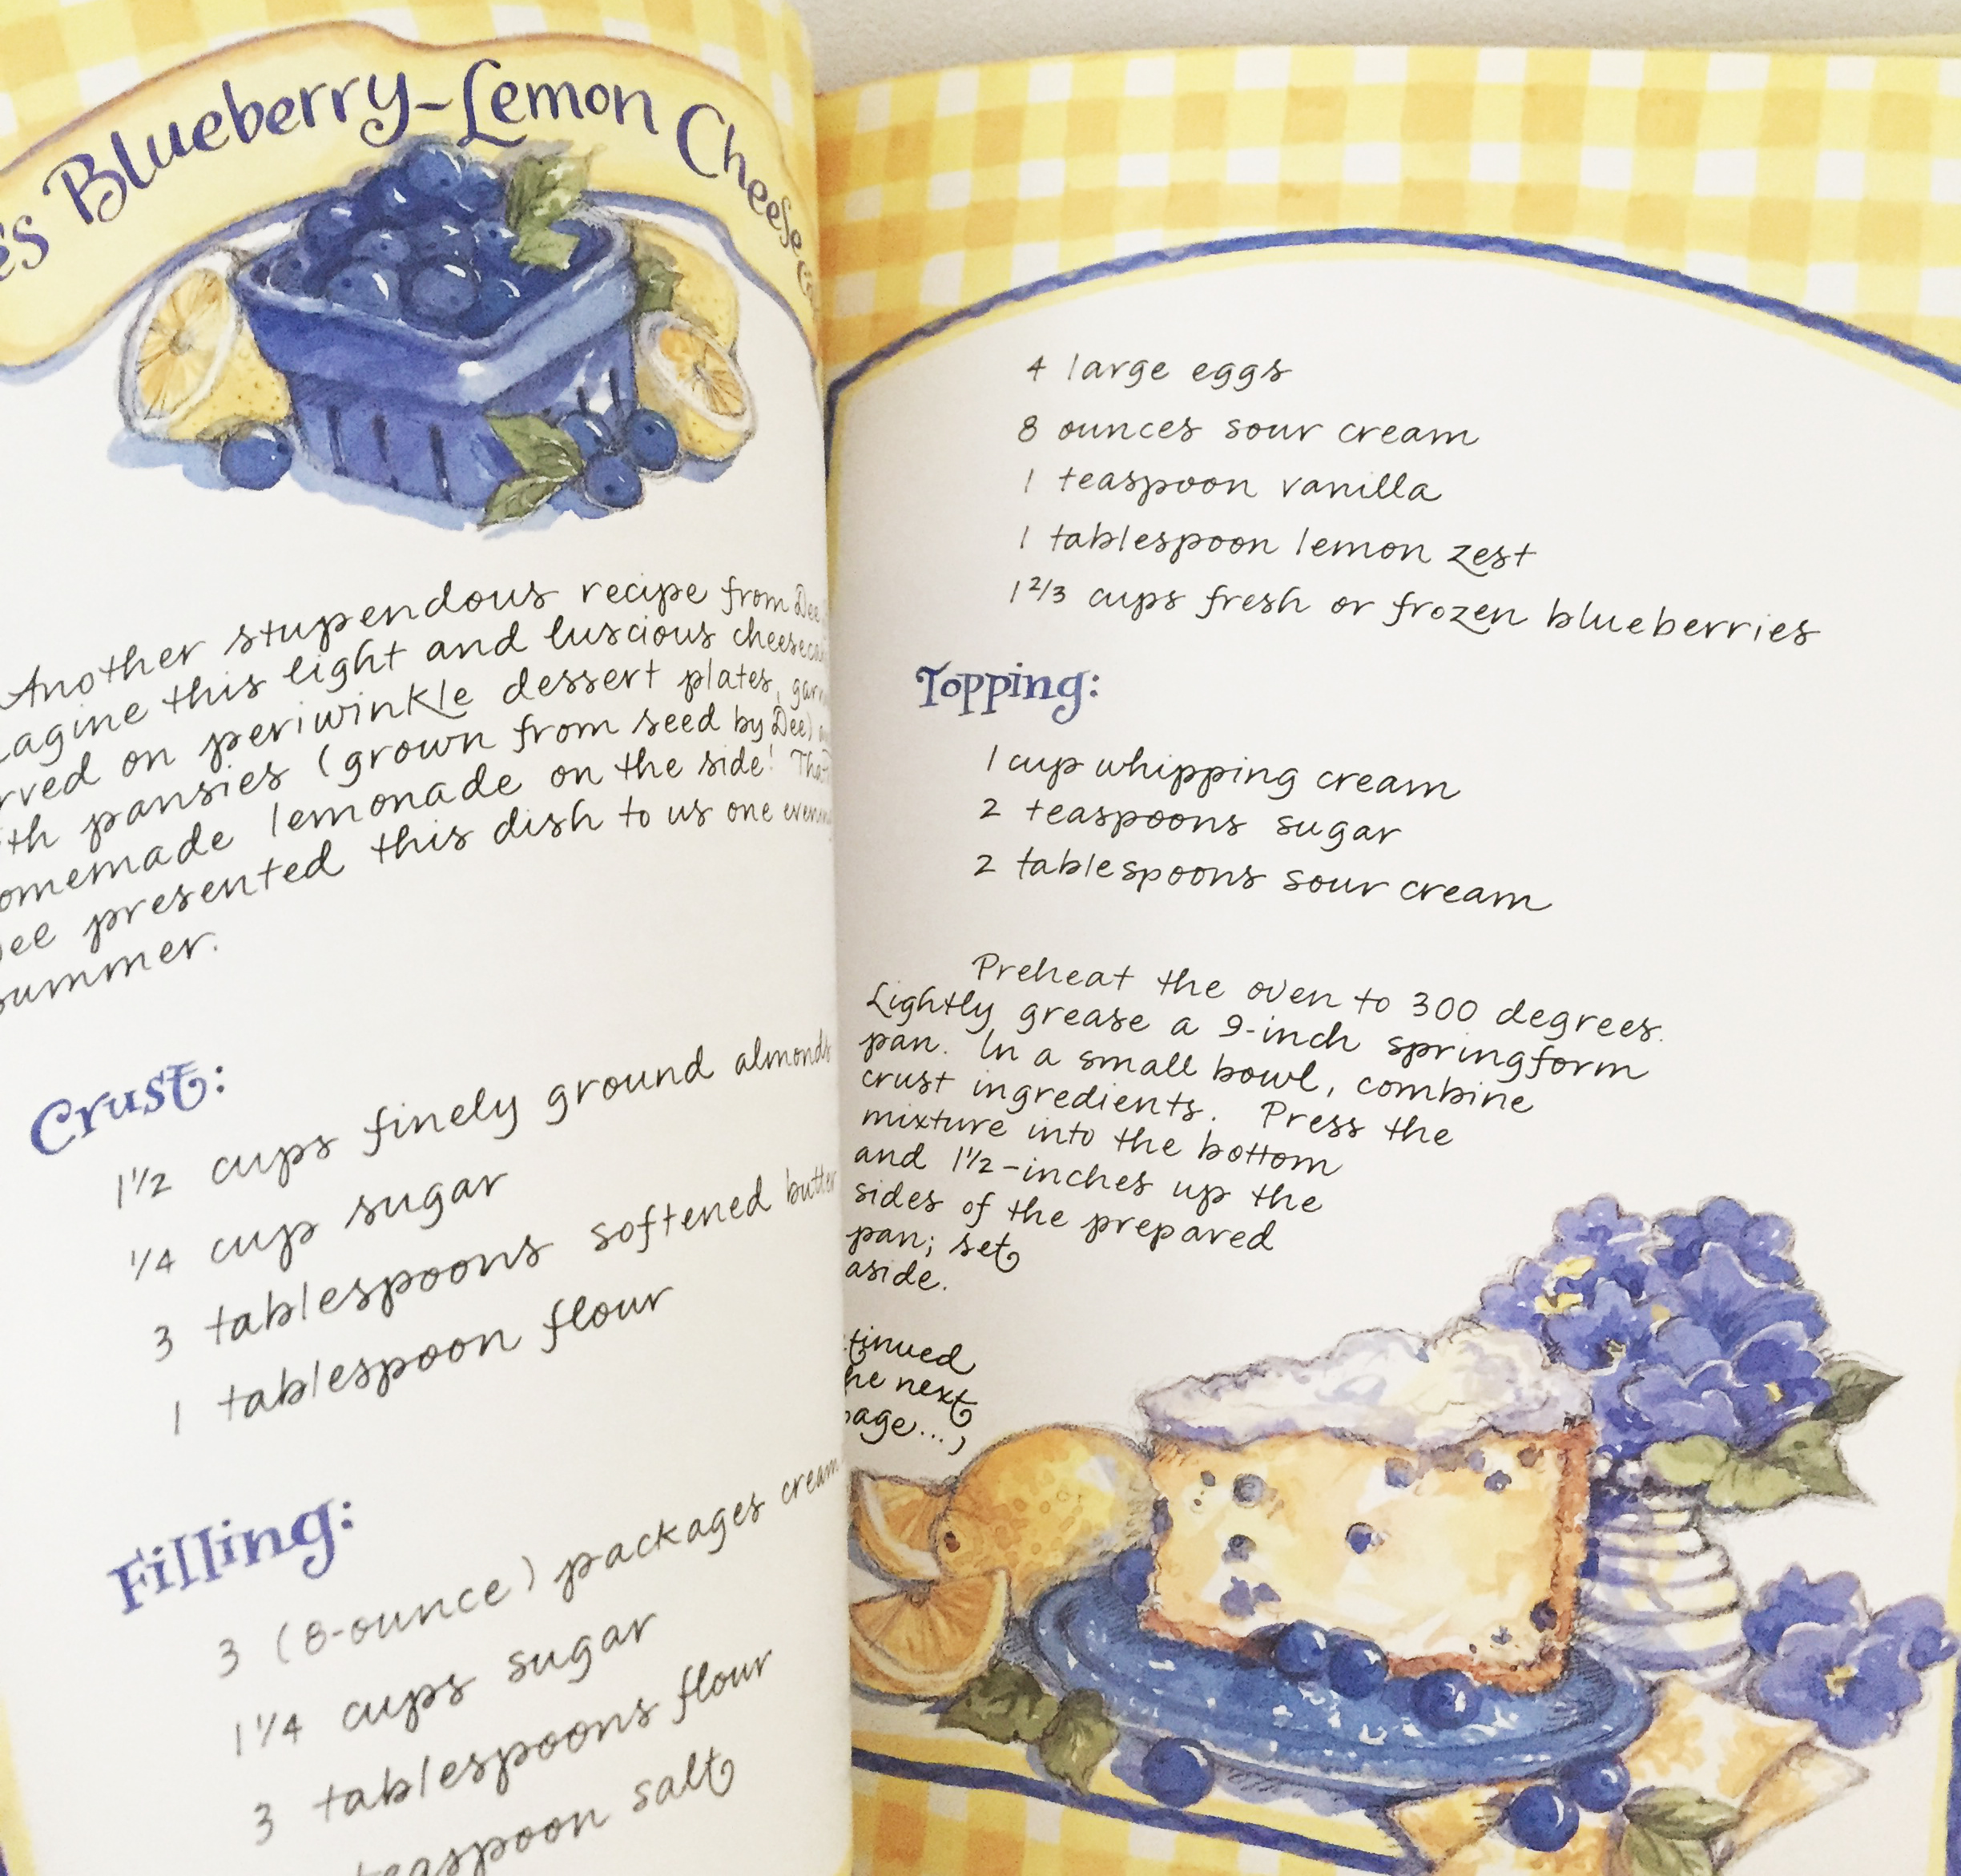 Blueberry-Lemon
Another stupendous recipe from Dee
this light and luscious
on periwinkle dessert plates,
pansies (grown from seed by Dee)
lemonade on the side!
presented this dish to us one
summer.
Crust:
1 1/2 cups finely ground almonds
1/4 cup sugar
3 tablespoons softened butter
1 tablespoon flour
Filling:
3 (8-ounce) packages cream
1 1/4 cups sugar
3 tablespoons flour
teaspoon salt
4 large eggs
8 ounces sour cream
1 teaspoon vanilla
1 tablespoon lemon zest
1 2/3 cups fresh or frozen blueberries
Topping:
1 cup whipping cream
2 teaspoons sugar
2 tablespoons sour cream
Preheat the oven to 300 degrees.
Lightly grease a 9-inch springform
pan. In a small bowl, combine
crust ingredients. Press the
mixture into the bottom
and 1 1/2-inches up the
sides of the prepared
pan; set
aside.
tinued
he next
page...,